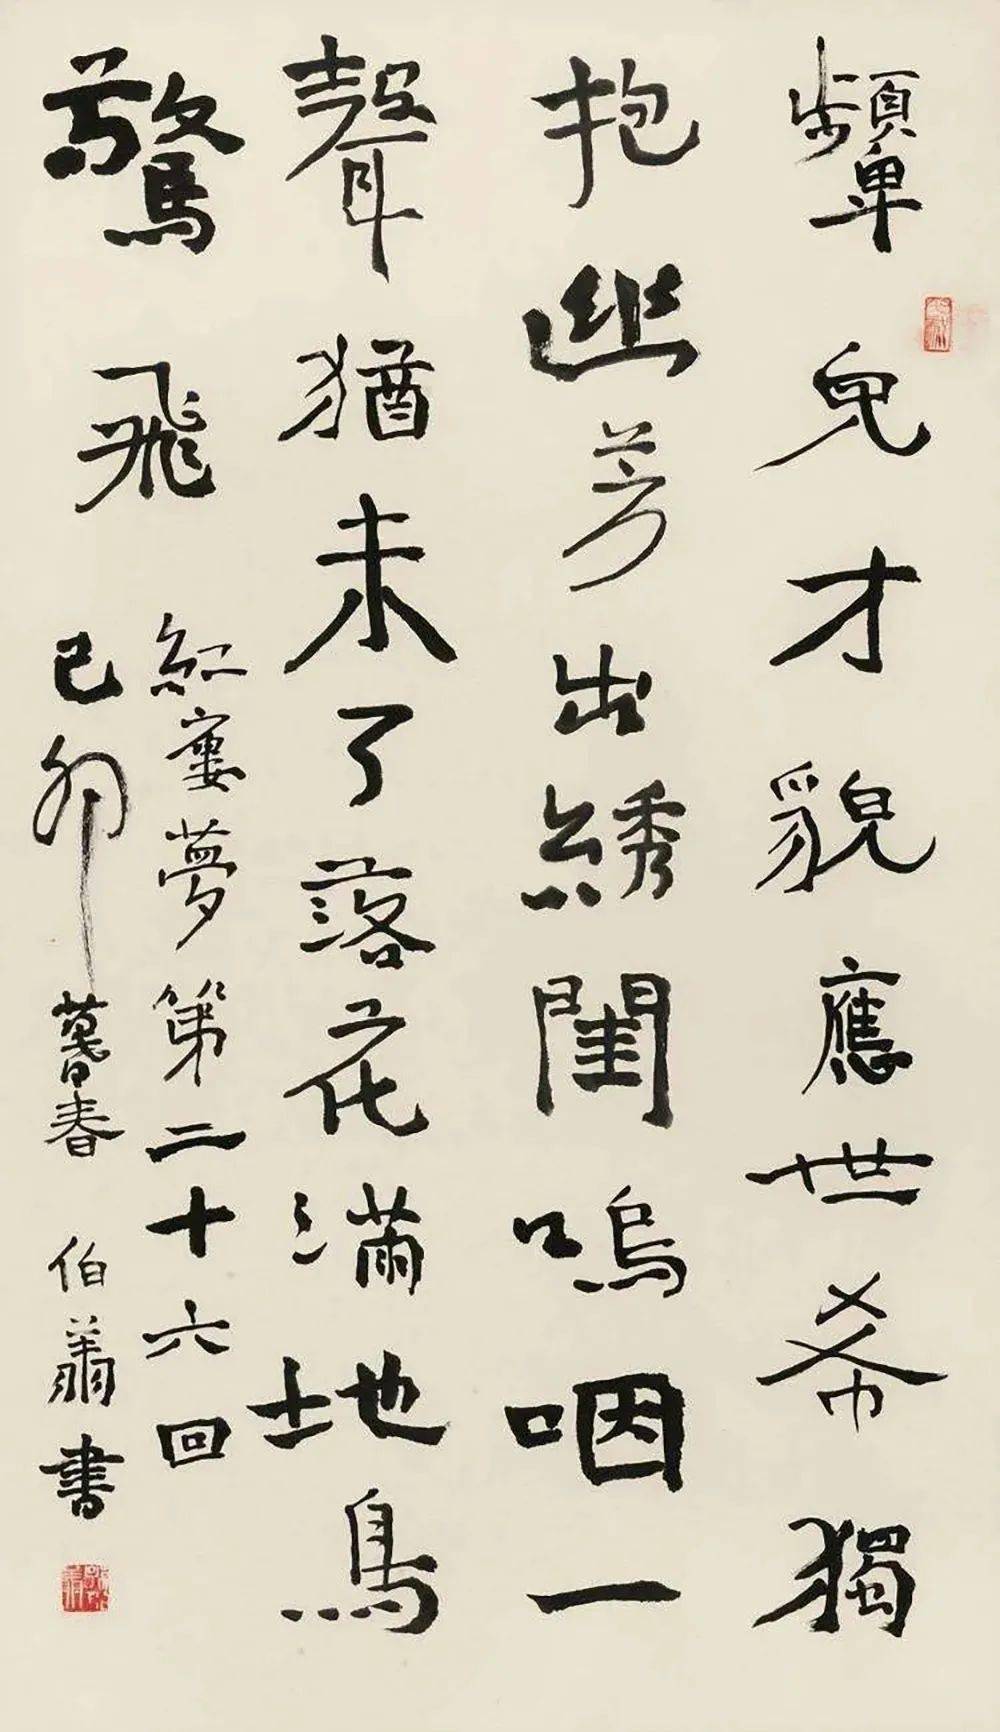 顰兒才貌應世希獨
抱幽芳出綉閨嗚咽一
聲猶未了落花滿地鳥
驚飛
紅樓夢第二十六回
己卯暮春 伯書